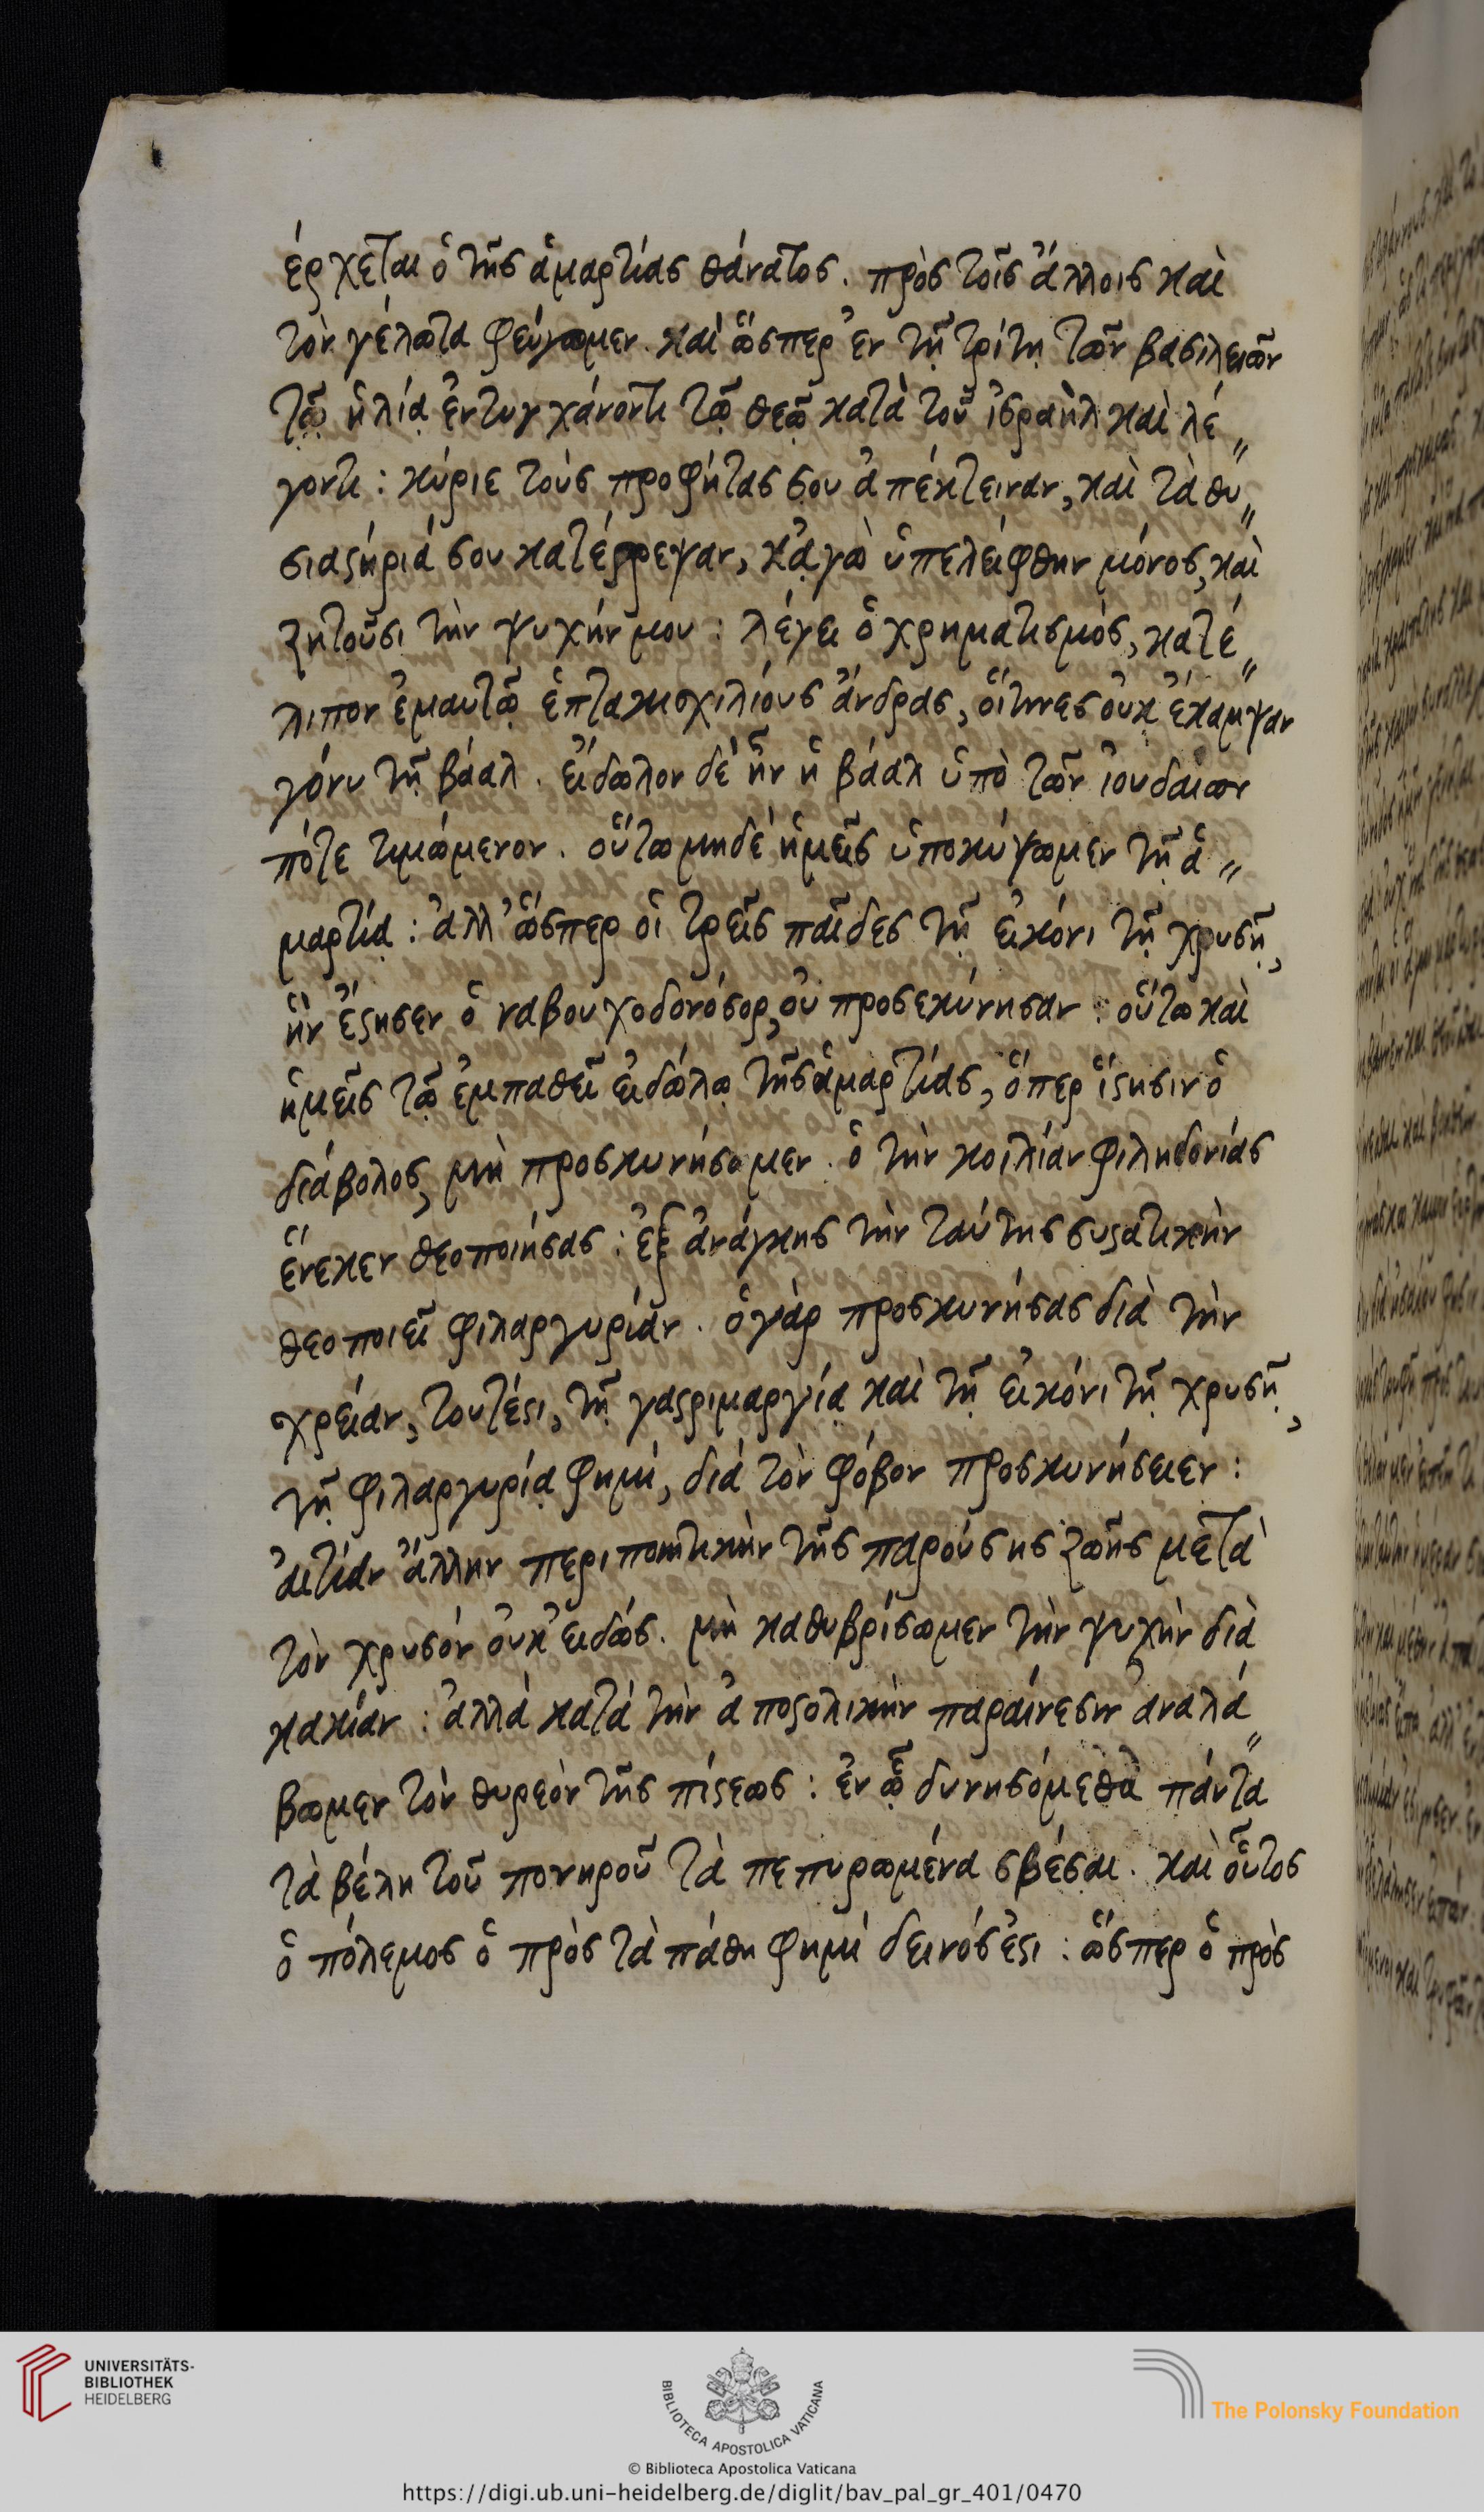 έρχεται ὁ τῆς ἁμαρτίας θάνατος. πρὸς τοῖς ἄλλοις καὶ
τὸν γέλωτα φεύγωμεν. καὶ ὥσπερ ἐν τῇ τρίτῃ τῶν βασιλειῶν
τῷ ἡλίᾳ ἐντυγχάνοντι τῷ θεῷ κατὰ τοῦ ἰσραὴλ καὶ λέ〃
γοντι: κύριε τοὺς προφήτας σου ἀπέκτειναν, καὶ τὰ θυ〃
σιαϛήριά σου κατέστρεψαν, κᾀγὼ ὑπελείφθην μόνος, καὶ
ζητοῦσι τὴν ψυχήν μου: λέγει ὁ χρηματισμὸς, κατέ〃
λιπον ἐμαυτῷ ἑπτακισχιλίους ἄνδρας, οἵτινες οὐκ ἔκαμψαν
γόνυ τῇ βάαλ. εἴδωλον δὲ ἦν ἡ βάαλ ὑπὸ τῶν ἰουδαίων
πότε τιμώμενον. οὕτω μηδὲ ἡμεῖς ὑποκύψωμεν τῇ ἁ〃
μαρτίᾳ: ἀλλ' ὥσπερ οἱ τρεῖς παῖδες τῇ εἰκόνι τῇ χρυσῇ,
ἣν ἔϛησεν ὁ ναβουχοδονόσορ, οὐ προσεκύνησαν: οὕτω καὶ
ἡμεῖς τῷ ἐμπαθεῖ εἰδώλῳ τῆς ἁμαρτίας, ὅπερ ἵϛησιν ὁ
διάβολος, μὴ προσκυνήσωμεν. ὁ τὴν κοιλίαν φιληδονίας
ἕνεκεν θεοποιήσας: ἐξ ἀνάγκης τὴν ταύτης συϛατικὴν
θεοποιεῖ φιλαργυρίαν. ὁ γὰρ προσκυνήσας διὰ τὴν
χρείαν, τουτέϛι, τῇ γαϛριμαργίᾳ καὶ τῇ εἰκόνι τῇ χρυσῇ,
τῇ φιλαργυρίᾳ φημὶ, διὰ τὸν φόβον προσκυνήσειεν:
ἀιτίαν ἄλλην περιποιητικὴν τῆς παρούσης ζωῆς μετὰ
τὸν χρυσὸν οὐκ εἰδώς. μὴ καθυβρίσωμεν τὴν ψυχὴν διὰ
κακίαν: ἀλλὰ κατὰ τὴν ἀποϛολικὴν παραίνεσιν ἀναλά〃
βωμεν τὸν θυρεὸν τῆς πίϛεως: ἐν ᾧ δυνησόμεθα πάντα
τὰ βέλη τοῦ πονηροῦ τὰ πεπυρωμένα σβέσαι. καὶ οὗτος
ὁ πόλεμος ὁ πρὸς τὰ πάθη φημὶ δεινός ἐϛι: ὥσπερ ὁ πρὸς
UNIVERSITÄTS-
BIBLIOTHEK
HEIDELBERG
BIBLIOTECA APOSTOLICA VATICANA
The Polonsky Foundation
© Biblioteca Apostolica Vaticana
https://digi.ub.uni-heidelberg.de/diglit/bav_pal_gr_401/0470